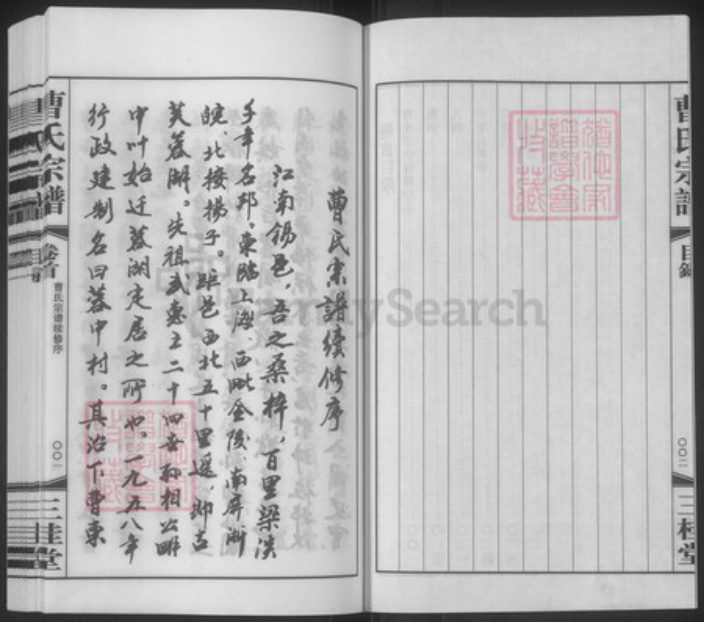 曹氏宗譜
目錄
〇〇二
三桂堂
曹氏宗譜續修序
江南錫邑，吾之桑梓，百里梁溪
千年名邦。東臨上海、西毗金陵、南屏浙
皖、北接揚子。距邑西北五十里遥，即古
芙蓉湖。先祖武惠王二十四世孫相公
中叶始迁蓉湖定居之所也。一九五八年
行政建制名曰蓉中村。其治下曹東
曹氏宗譜
卷首
曹氏宗譜续修序
〇〇一
三桂堂
FamilySearch